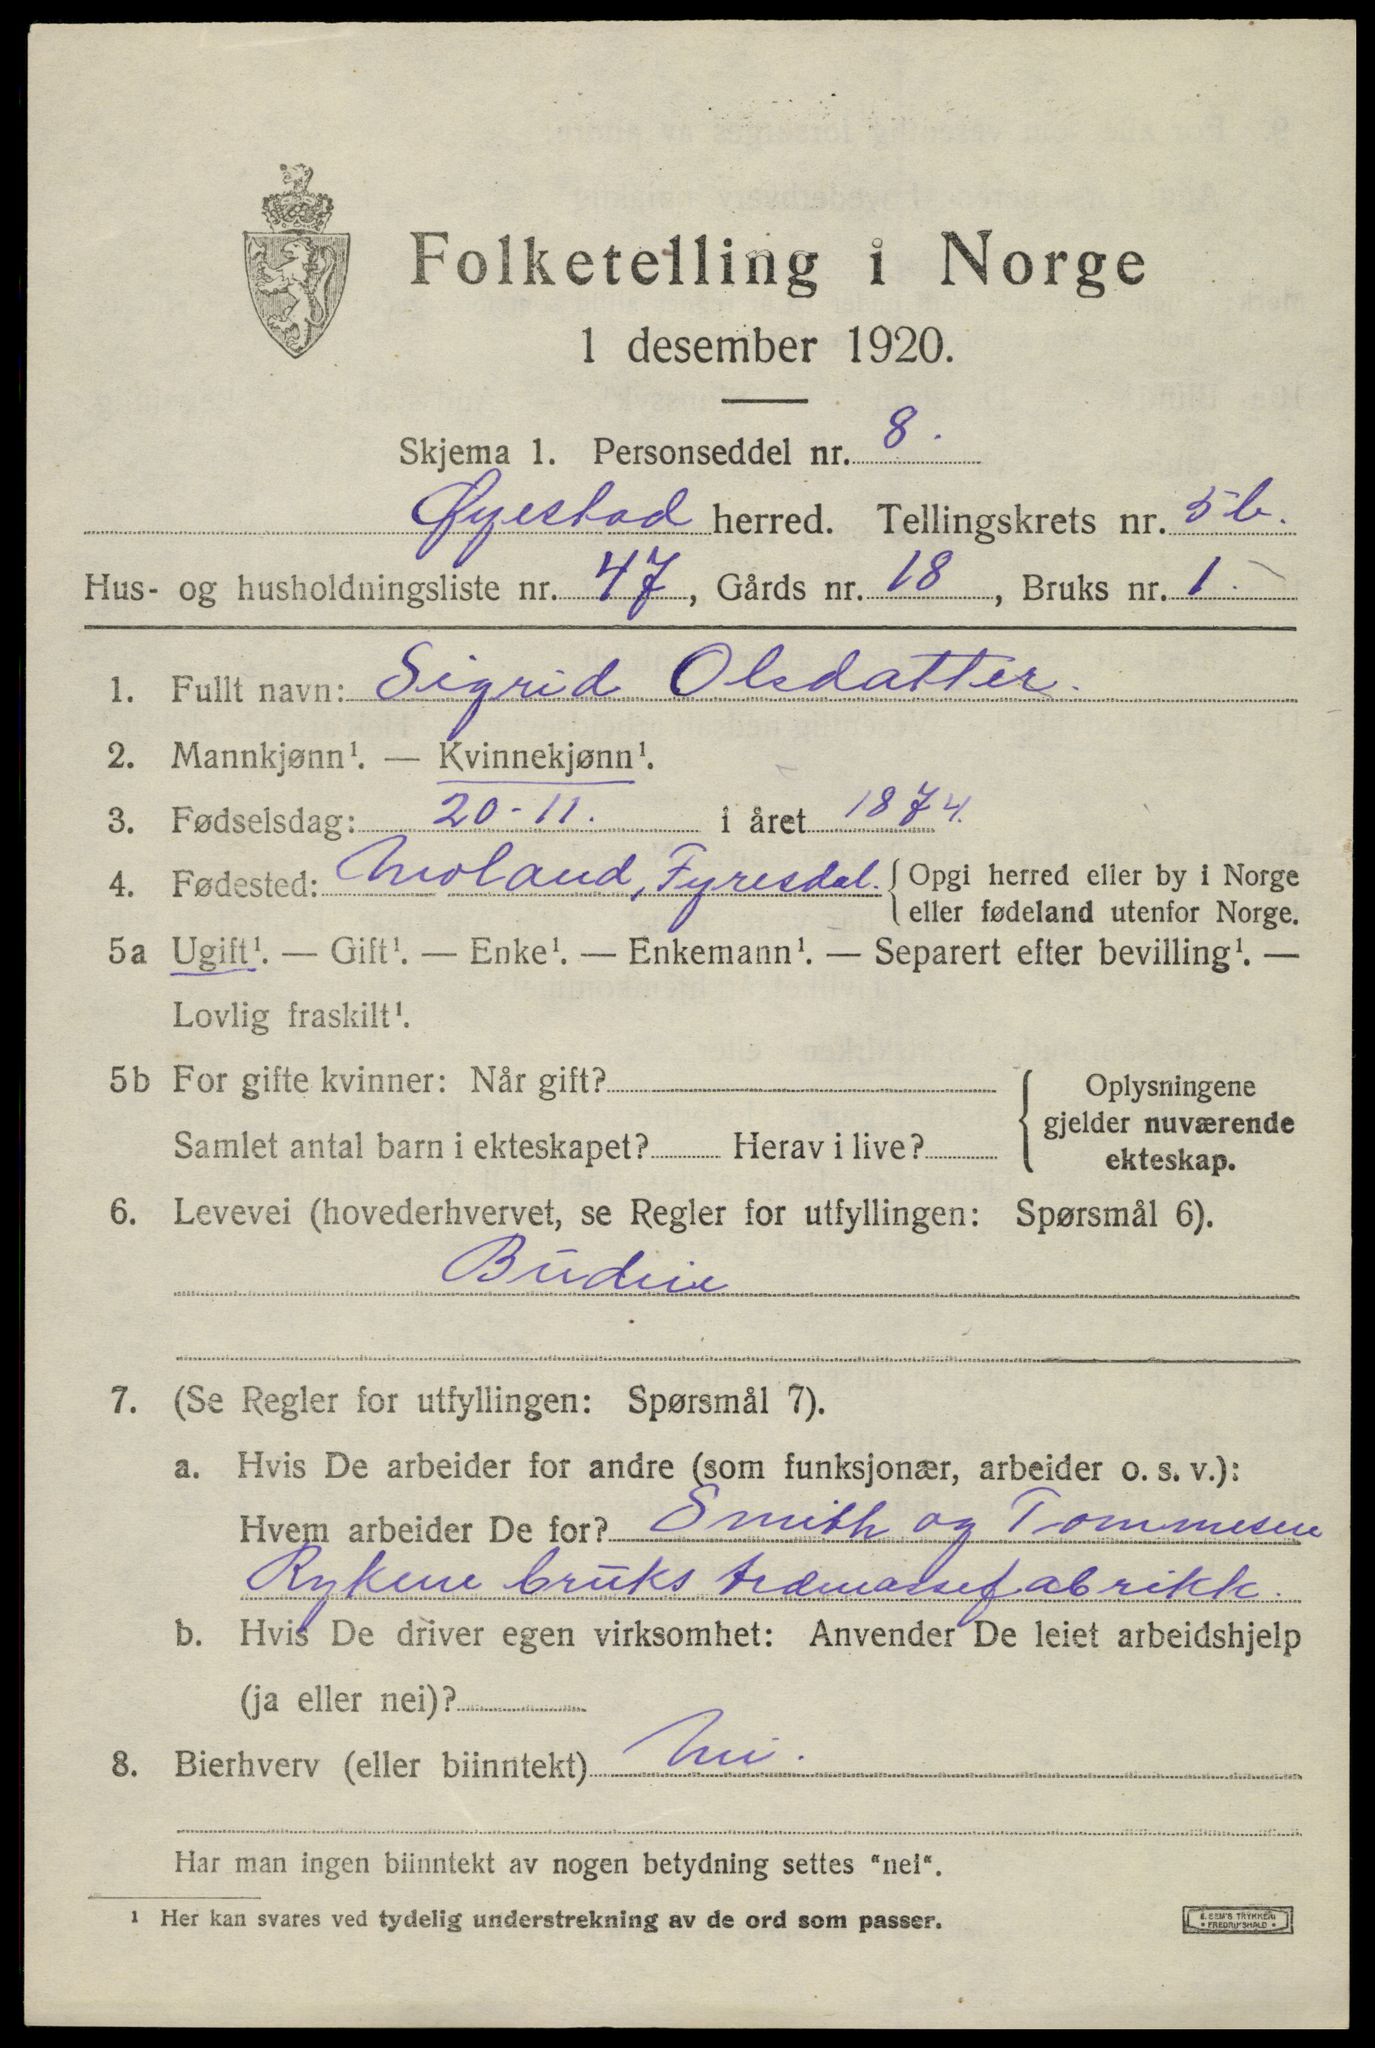 Folketelling i Norge
1 desember 1920.
Skjema 1. Personseddel nr. 8.
Øyestad herred. Tellingskrets nr. 5b.
Hus- og husholdningsliste nr. 47, Gårds nr. 18, Bruks nr. 1.
1. Fullt navn: Sigrid Olsdatter.
2. Mannkjønn¹. — Kvinnekjønn¹.
3. Fødselsdag: 20-11. i året 1874.
4. Fødested: Moland, Fyresdal. { Opgi herred eller by i Norge
eller fødeland utenfor Norge.
5a Ugift¹. — Gift¹. — Enke¹. — Enkemann¹. — Separert efter bevilling¹. —
Lovlig fraskilt¹.
5b For gifte kvinner: Når gift?
Samlet antal barn i ekteskapet? Herav i live?
Oplysningene
gjelder nuværende
ekteskap.
6. Levevei (hovederhvervet, se Regler for utfyllingen: Spørsmål 6).
Budeie
7. (Se Regler for utfyllingen: Spørsmål 7).
a. Hvis De arbeider for andre (som funksjonær, arbeider o. s. v.):
Hvem arbeider De for? Smith og Tommesen
Rykene bruks træmassefabrikk.
b. Hvis De driver egen virksomhet: Anvender De leiet arbeidshjelp
(ja eller nei)?
8. Bierhverv (eller biinntekt) Nei.
Har man ingen biinntekt av nogen betydning settes "nei".
¹ Her kan svares ved tydelig understrekning av de ord som passer.
E. SEM'S TRYKKERI
• FREDRIKSHALD •